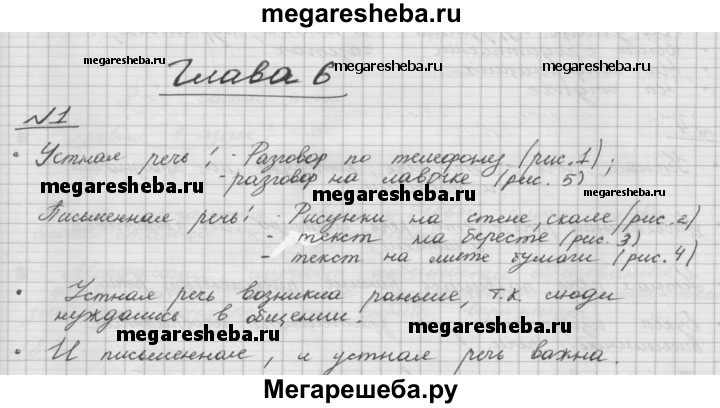 megaresheba.ru
megaresheba.ru Глава 6 megaresheba.ru
№1
• Устная речь: - Разговор по телефону (рис. 1);
megaresheba.ru - разговор на лавочке (рис. 5) megaresheba.ru
Письменная речь: - Рисунки на стене, скале (рис. 2)
- текст на бересте (рис. 3)
- текст на листе бумаги (рис. 4)
• Устная речь возникла раньше, т.к. люди
нуждались в общении.
megaresheba.ru megaresheba.ru
• И письменная, и устная речь важна.
Мегарешеба.ру